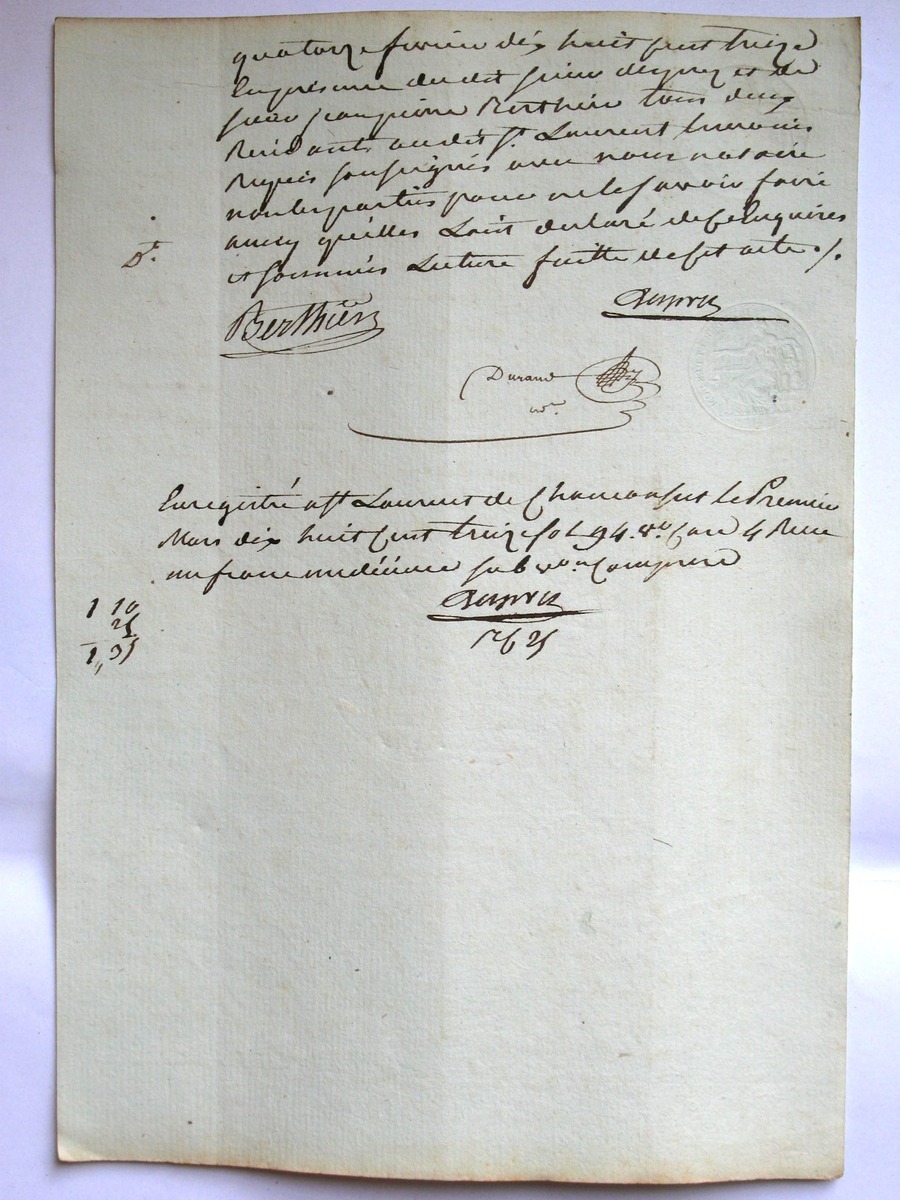 quatorze fevrier dix huit cent treize
En presence dudit sieur desprez et de
sieur jean pierre Berthier tous deux
Residants audit St. Laurent temoins
Requis soussignés avec nous notaire
non les parties pour ne le savoir faire
ainsy quelles Lont declaré de ce Enquises
et sommés Lecture faitte de cet acte ./.
Dr.
Berthier
Desprez
Durand
nre.
Enregistré a St Laurent de Chamousset le Premier
Mars dix huit cent treize fol 94 vo. Case 4 Recu
un franc un décime subvon. Comprise
Desprez
1 10
25
1,, 35